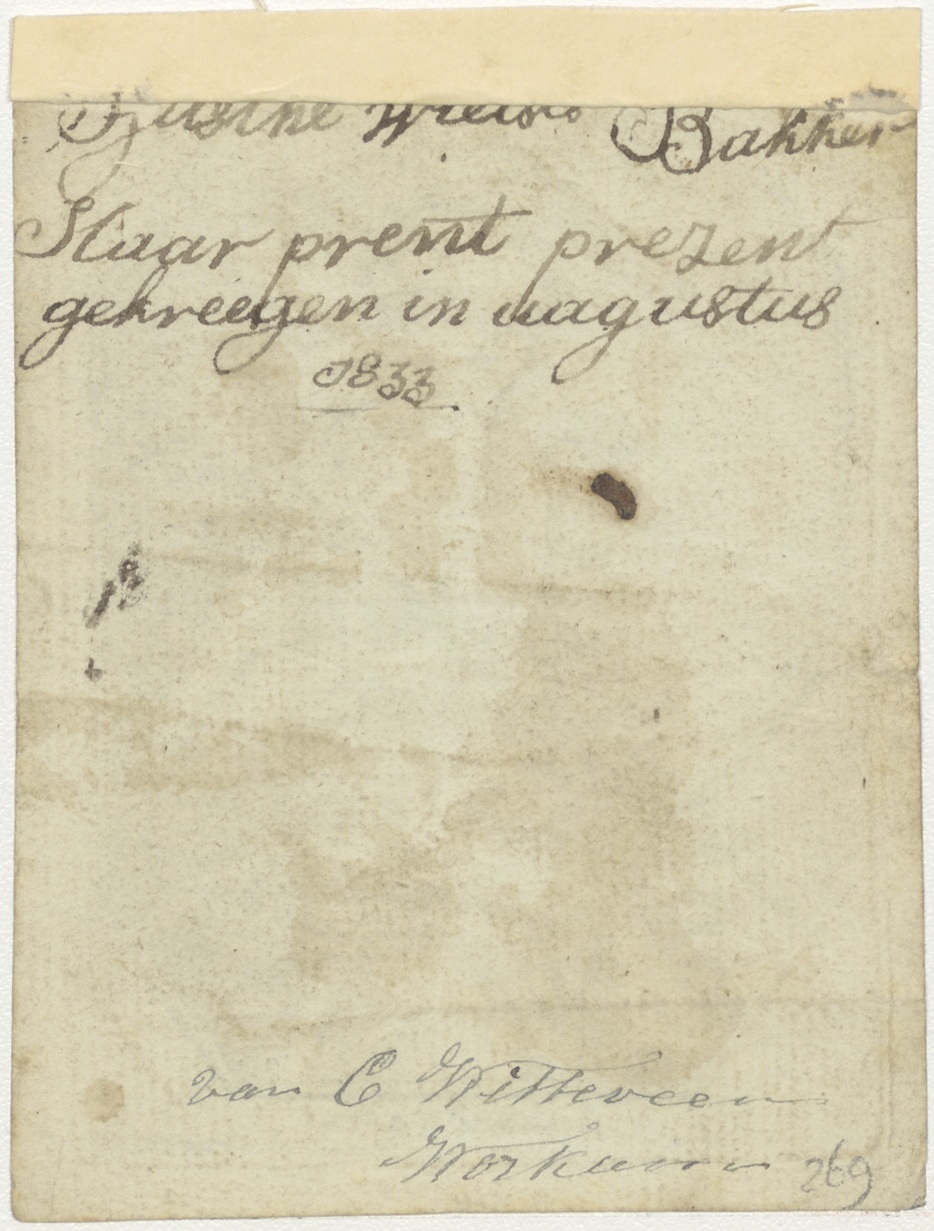 Bakker
Haar prent prezent
gekreegen in aagustus
1833
van C Witteveen
Workum
269